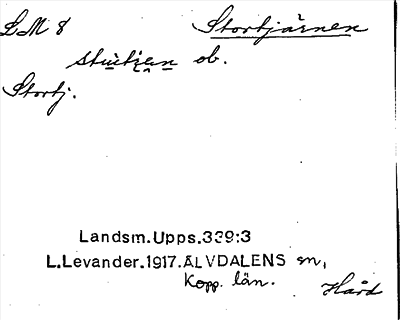 LM 8 Stortjärnen
ob.
Stortj.
Landsm.Upps.339:3
L.Levander.1917.ÄLVDALENS sn,
Kopp. län.
Hård